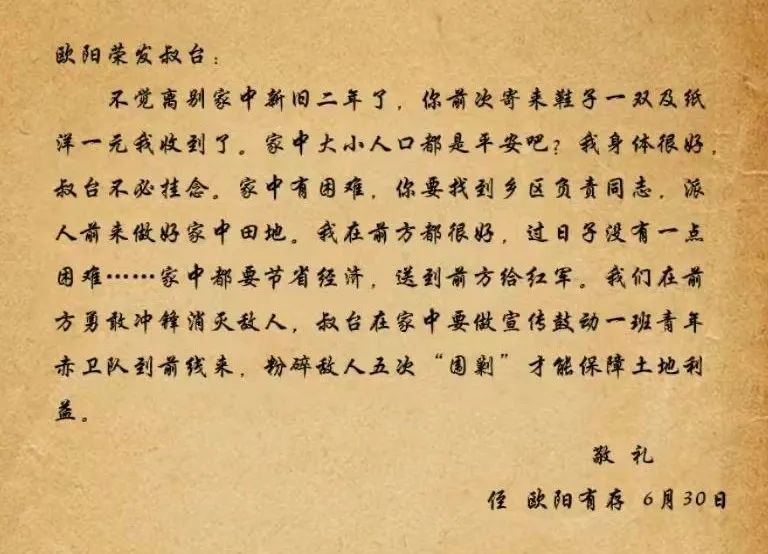 欧阳荣发叔台：
不觉离别家中新旧二年了，你前次寄来鞋子一双及纸
洋一元我收到了。家中大小人口都是平安吧？我身体很好，
叔台不必挂念。家中有困难，你要找到乡区负责同志，派
人前来做好家中田地。我在前方都很好，过日子没有一点
困难……家中都要节省经济，送到前方给红军。我们在前
方勇敢冲锋消灭敌人，叔台在家中要做宣传鼓动一班青年
赤卫队到前线来，粉碎敌人五次“围剿”才能保障土地利
益。
敬 礼
侄 欧阳有存 6月30日